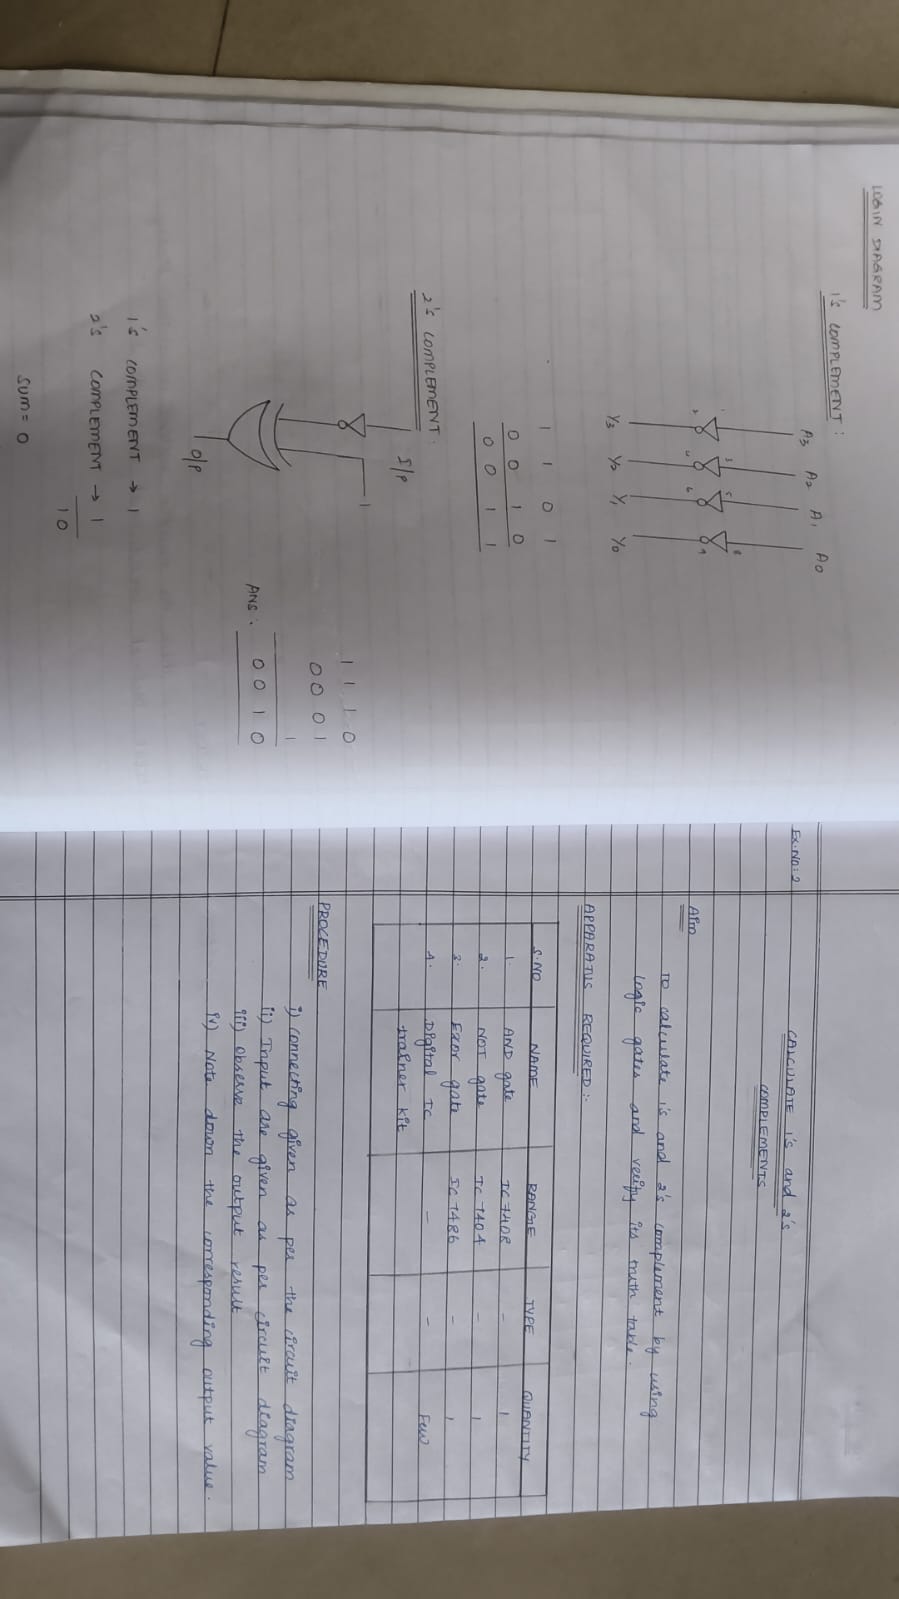 LOGIN DIAGRAM
1's COMPLEMENT:
A3 A2 A1 A0
1 3 5 8
2 4 6 9
Y3 Y2 Y1 Y0
1 1 0 1
0 0 1 0
0 0 1 1
2's COMPLEMENT:
I/P
1
O/P
1 1 1 0
0 0 0 1
1
ANS: 0 0 1 0
1's COMPLEMENT → 1
2's COMPLEMENT → 1
1 0
SUM = 0
Ex.No: 2
CALCULATE 1's and 2's
COMPLEMENTS
Aim
To calculate 1's and 2's complement by using
logic gates and verify its truth table.
APPARATUS REQUIRED:-
S.NO NAME RANGE TYPE QUANTITY
1. AND gate IC 7408 - 1
2. NOT gate IC 7404 - 1
3. Exor gate IC 7486 - 1
4. Digital IC - - Few
trainer kit
PROCEDURE
i) connecting given as per the circuit diagram
ii) Input are given as per circuit diagram
iii) observe the output result
iv) Note down the corresponding output value.